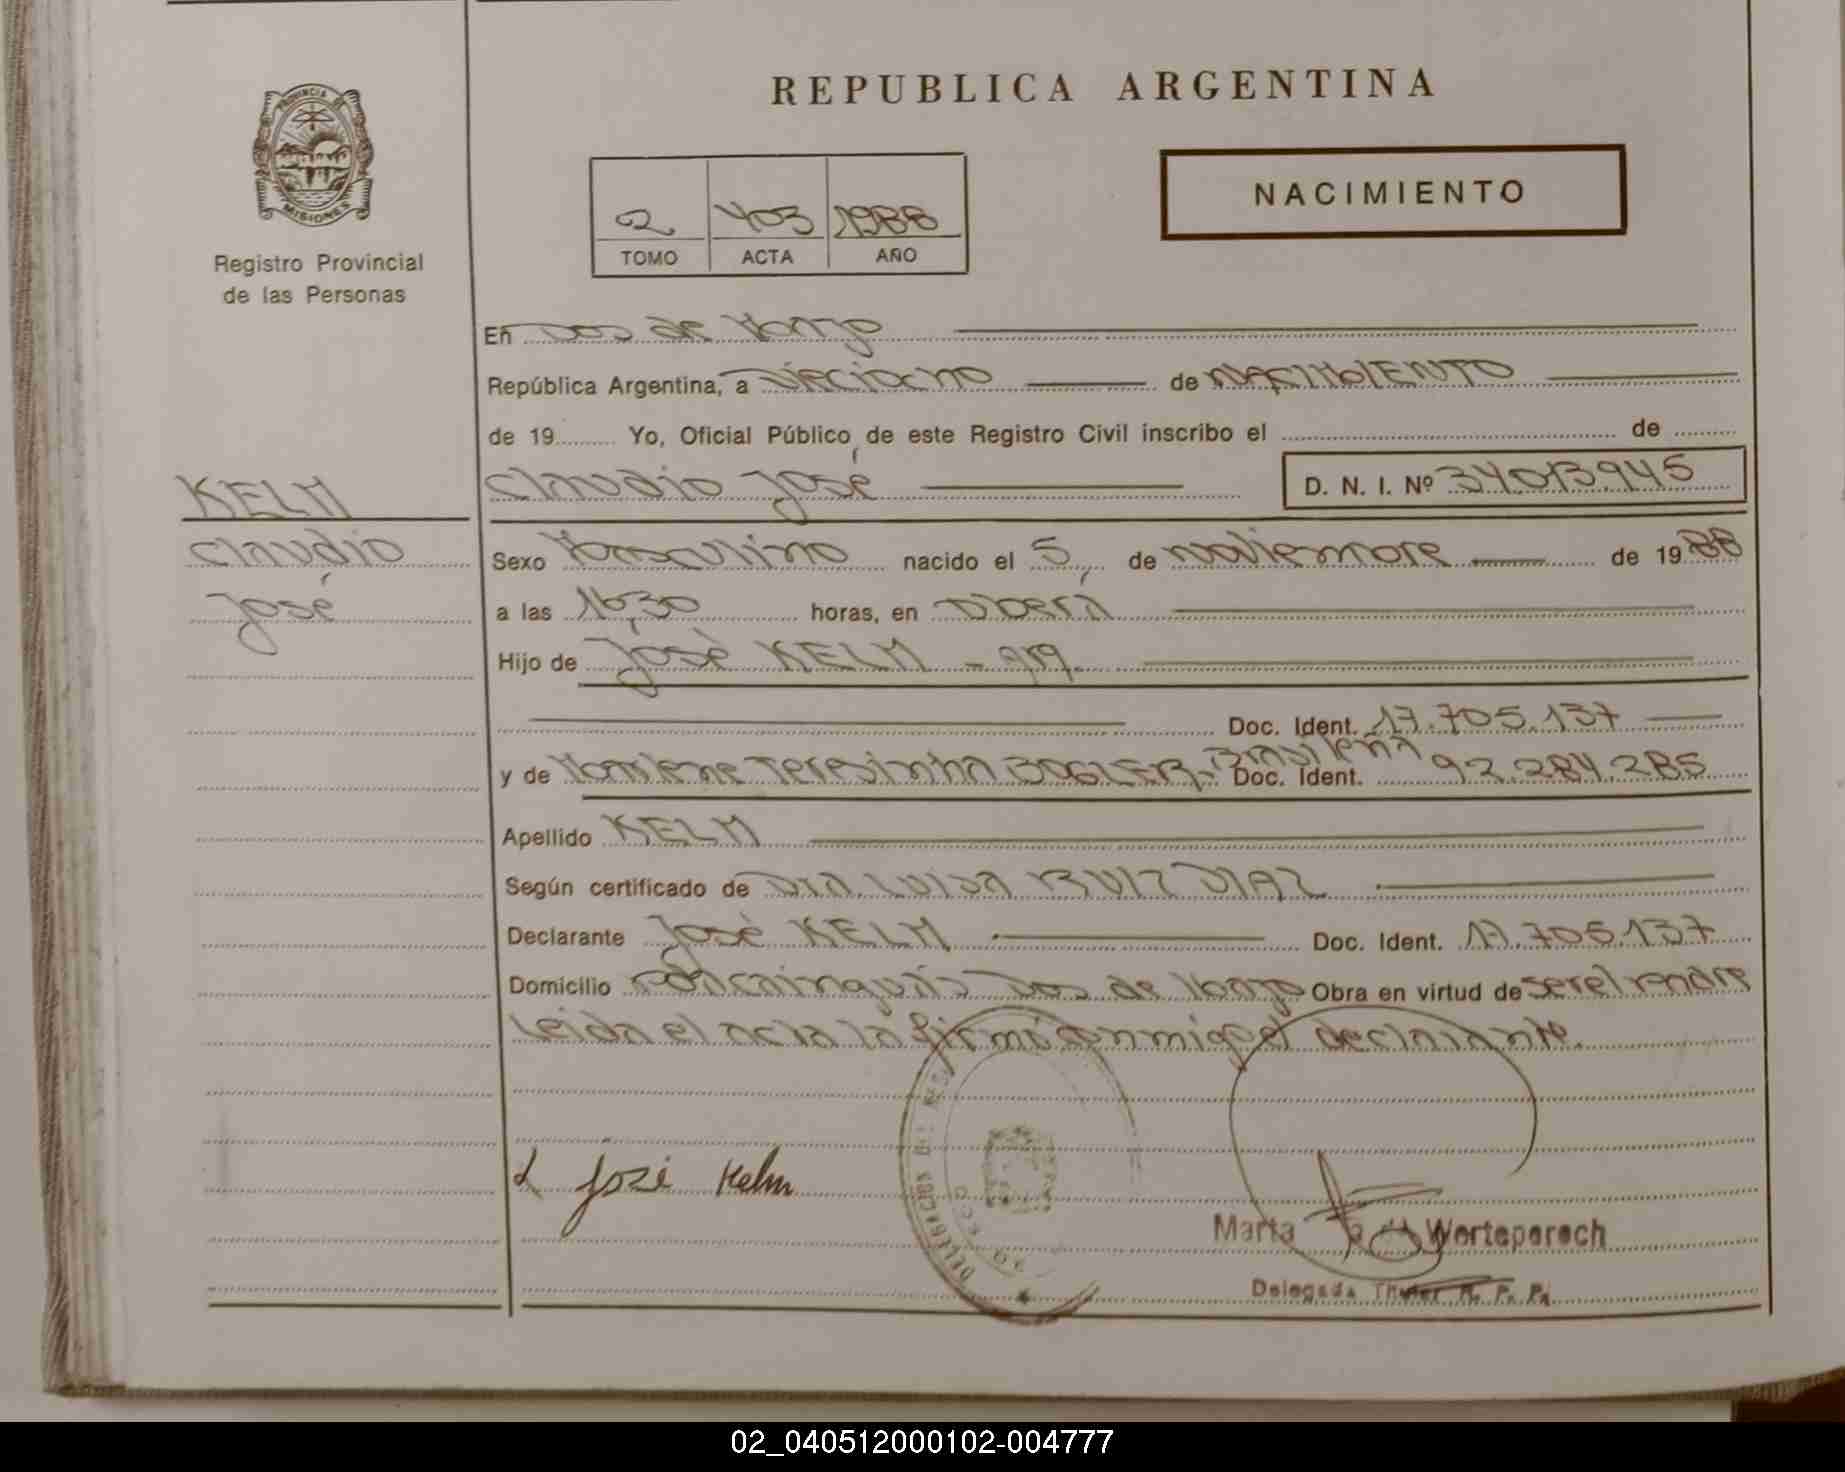 REPUBLICA ARGENTINA
PROVINCIA DE
MISIONES
Registro Provincial
de las Personas
NACIMIENTO
2 403 1988
TOMO ACTA AÑO
En Dos de Mayo
República Argentina, a Dieciocho de NACIMIENTO
de 19 Yo, Oficial Público de este Registro Civil inscribo el de
KELM
Claudio José D. N. I. Nº 34.013.945
Claudio
José
Sexo Masculino nacido el 5, de noviembre de 1988
a las 16,30 horas, en Oberá
Hijo de José KELM - arg.
Doc. Ident. 17.705.137
y de Marlene Teresinha BOGLER - Brasileña Doc. Ident. 92.284.285
Apellido KELM
Según certificado de DRA. LUISA RUIZ DIAZ
Declarante José KELM Doc. Ident. 17.705.137
Domicilio Pdo Cainguás Dos de Mayo Obra en virtud de ser el padre
Leida el acta la firmó conmigo el declarante.
José Kelm
Marta de Worteperech
Delegada Titular R. P. P.
02_040512000102-004777